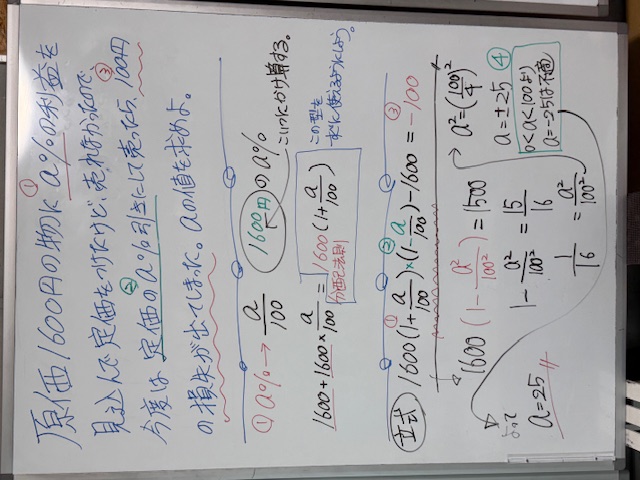 原価1600円の物に①a%の利益を
見込んで定価をつけたけど、売れなかったので、
今度は②定価のa%引きにして売ったら、③100円
の損失が出てしまった。aの値を求めよ。
①a% → a/100
1600円のa%
こいつにかけ算する。
1600+1600×a/100=1600(1+a/100)
分配法則
この型を
すぐに使えるようにしよう。
立式
①1600(1+a/100)×②(1-a/100)-1600=③-100
1600(1-a²/100²)=1500
1-a²/100²=15/16
1/16=a²/100²
→ a²=(100/4)²
a=±25 ④
0<a<100より
a=-25は不適
よって
a=25